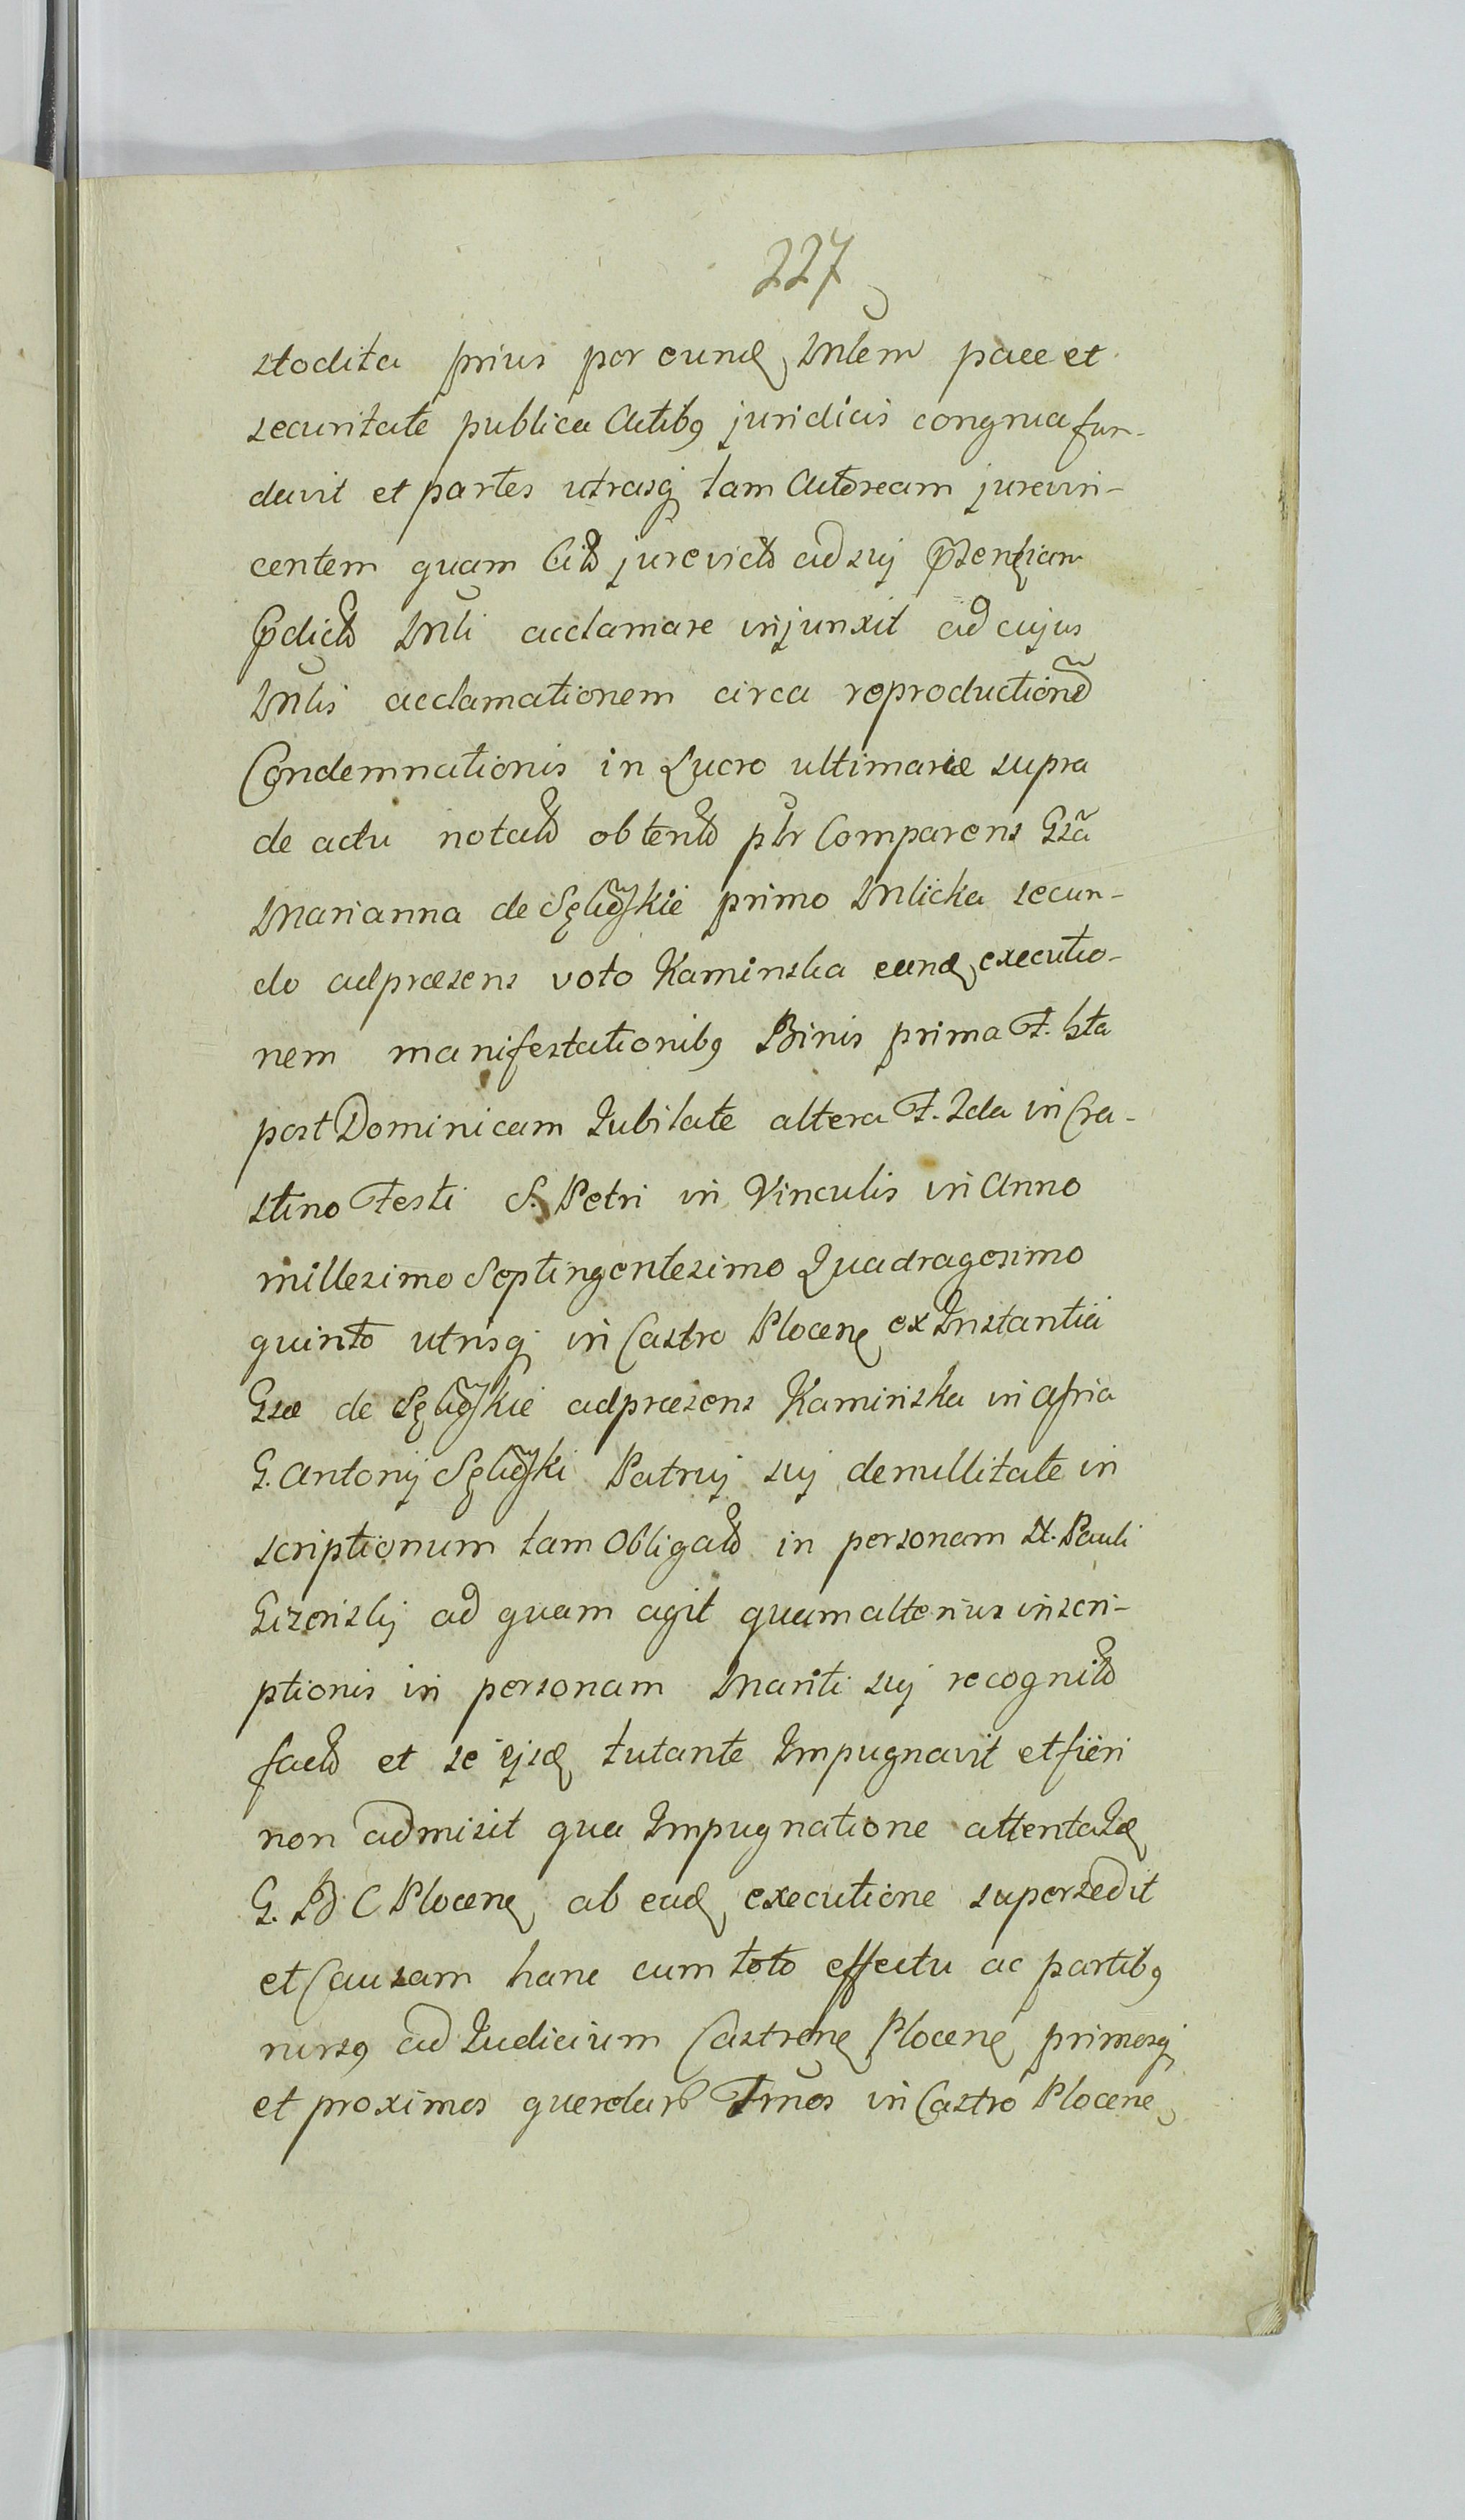 227
stodita prius per eund Mlem pace et
securitate publica Actibq juridicis congrua fun-
davit et partes utrasq tam Actoream jurevin-
centem quam Cit jurevict ad suj Pṡentiam
Pdict Mli acclamare injunxit ad cujus
Mlis acclamationem circa reproductione
Condemnationis in Lucro ultimariæ supra
de actu notat obtent ptr Comparens Gsa
Marianna de Skie primo Mlicka secun-
do adpræsens voto Kaminska eand executio-
nem manifestationibq Binis prima F. 6ta
post Dominicam Jubilate altera F. 2da in Cra-
stino Festi S. Petri in Vinculis in Anno
millesimo Septingentesimo Quadragesimo
quinto utrisq in Castro Plocen ex Instantia
Gsæ de adpræsens Kaminska in Assria
G. Antonij Patruj suj de nullitate in
scriptionum tam Obligat in personam M. Pauli
Gizenskj ad quam agit quam alterius inscri-
ptionis in personam Mariti suj recognit
fact et se ejsd tutante Impugnavit et fieri
non admisit qua Impugnatione attenta Id
G. B C Plocen ab ead executione supersedit
et Causam hanc cum toto effectu ac partibq
rursq ad Judicium Castrene Plocen primosq
et proximos querelar Tmnos in Castro Plocen